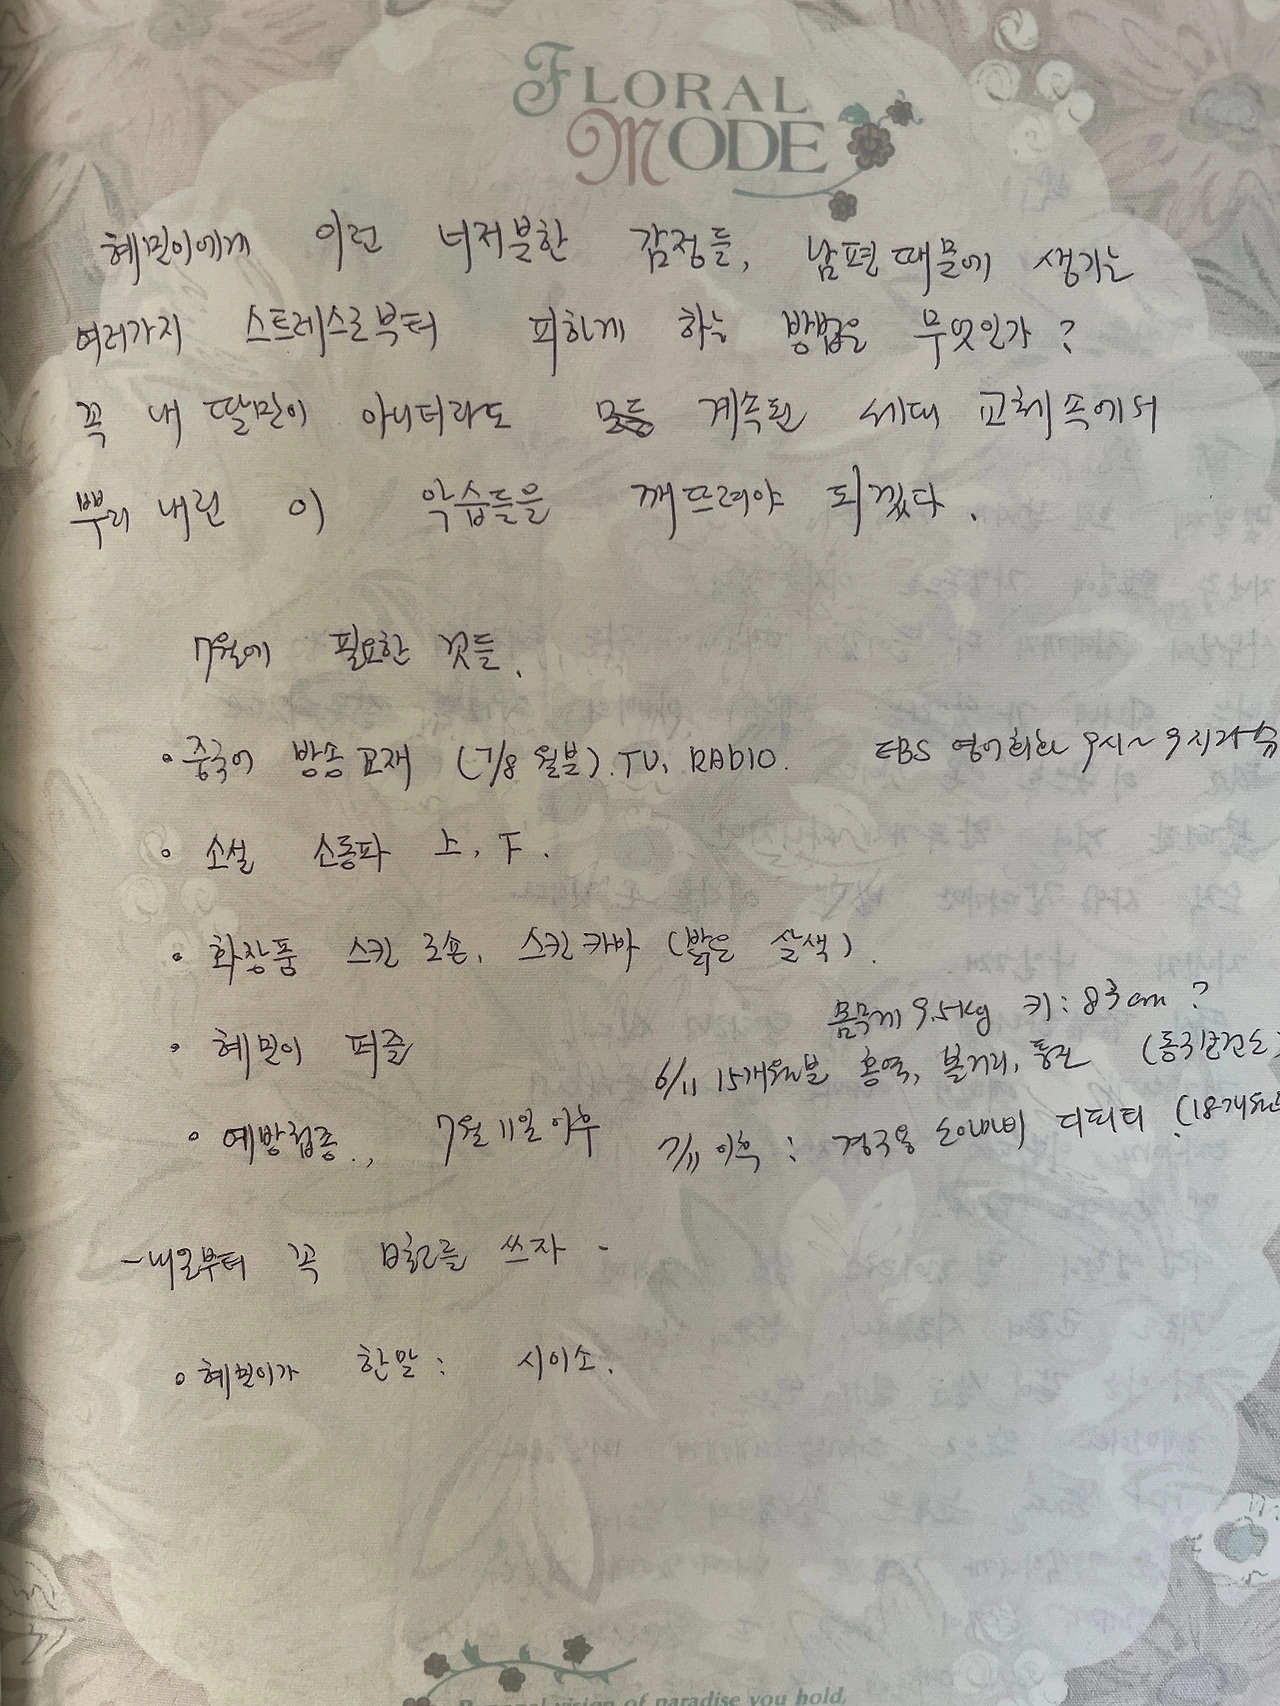 FLORAL
MODE
혜민이에게 이런 너저분한 감정들, 남편 때믈에 생기는
여러가지 스트레스로부터 피하게 하는 방법은 무엇인가?
꼭 내 딸만이 아니더라도 계속된 세대 교체 속에서
뿌리 내린 이 악습들을 깨뜨려야 되겠다.
7월에 필요한 것들.
• 중국어 방송교재 (7/8 월분). TV, RADIO. EBS 영어회화 9시~9시
• 소설 소동파 上, 下.
• 화장품 스킨 로숀, 스킨카바 (밝은 살색).
• 혜민이 퍼즐
몸무게 9.5kg 키: 83cm ?
6/11 15개월분 홍역, 볼거리, 풍진
• 예방접종., 7월 11일 이후
7/11 이후 : 경구용 소아마비 디피티 (18개월
-내일부터 꼭 日記를 쓰자 -
• 혜민이가 한말 : 시이소.
Personal vision of paradise you hold,